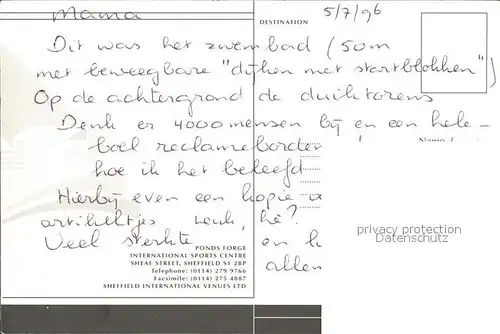 Mama
DESTINATION
5/7/96
Dit was het zwembad (50m
met beweegbare "dijken met startblokken")
Op de achtergrond de duiktorens
Denk er 4000 mensen bij en een hele-
boel reclameborden
hoe ik het beleefd
Hierbij even een kopie
artikeltjes Leuk, hè?
Veel sterkte en
allen
privacy protection
DarkCards.com
PONDS FORGE
INTERNATIONAL SPORTS CENTRE
SHEAF STREET, SHEFFIELD S1 2BP
Telephone: (0114) 279 9766
Facsimile: (0114) 275 4887
SHEFFIELD INTERNATIONAL VENUES LTD